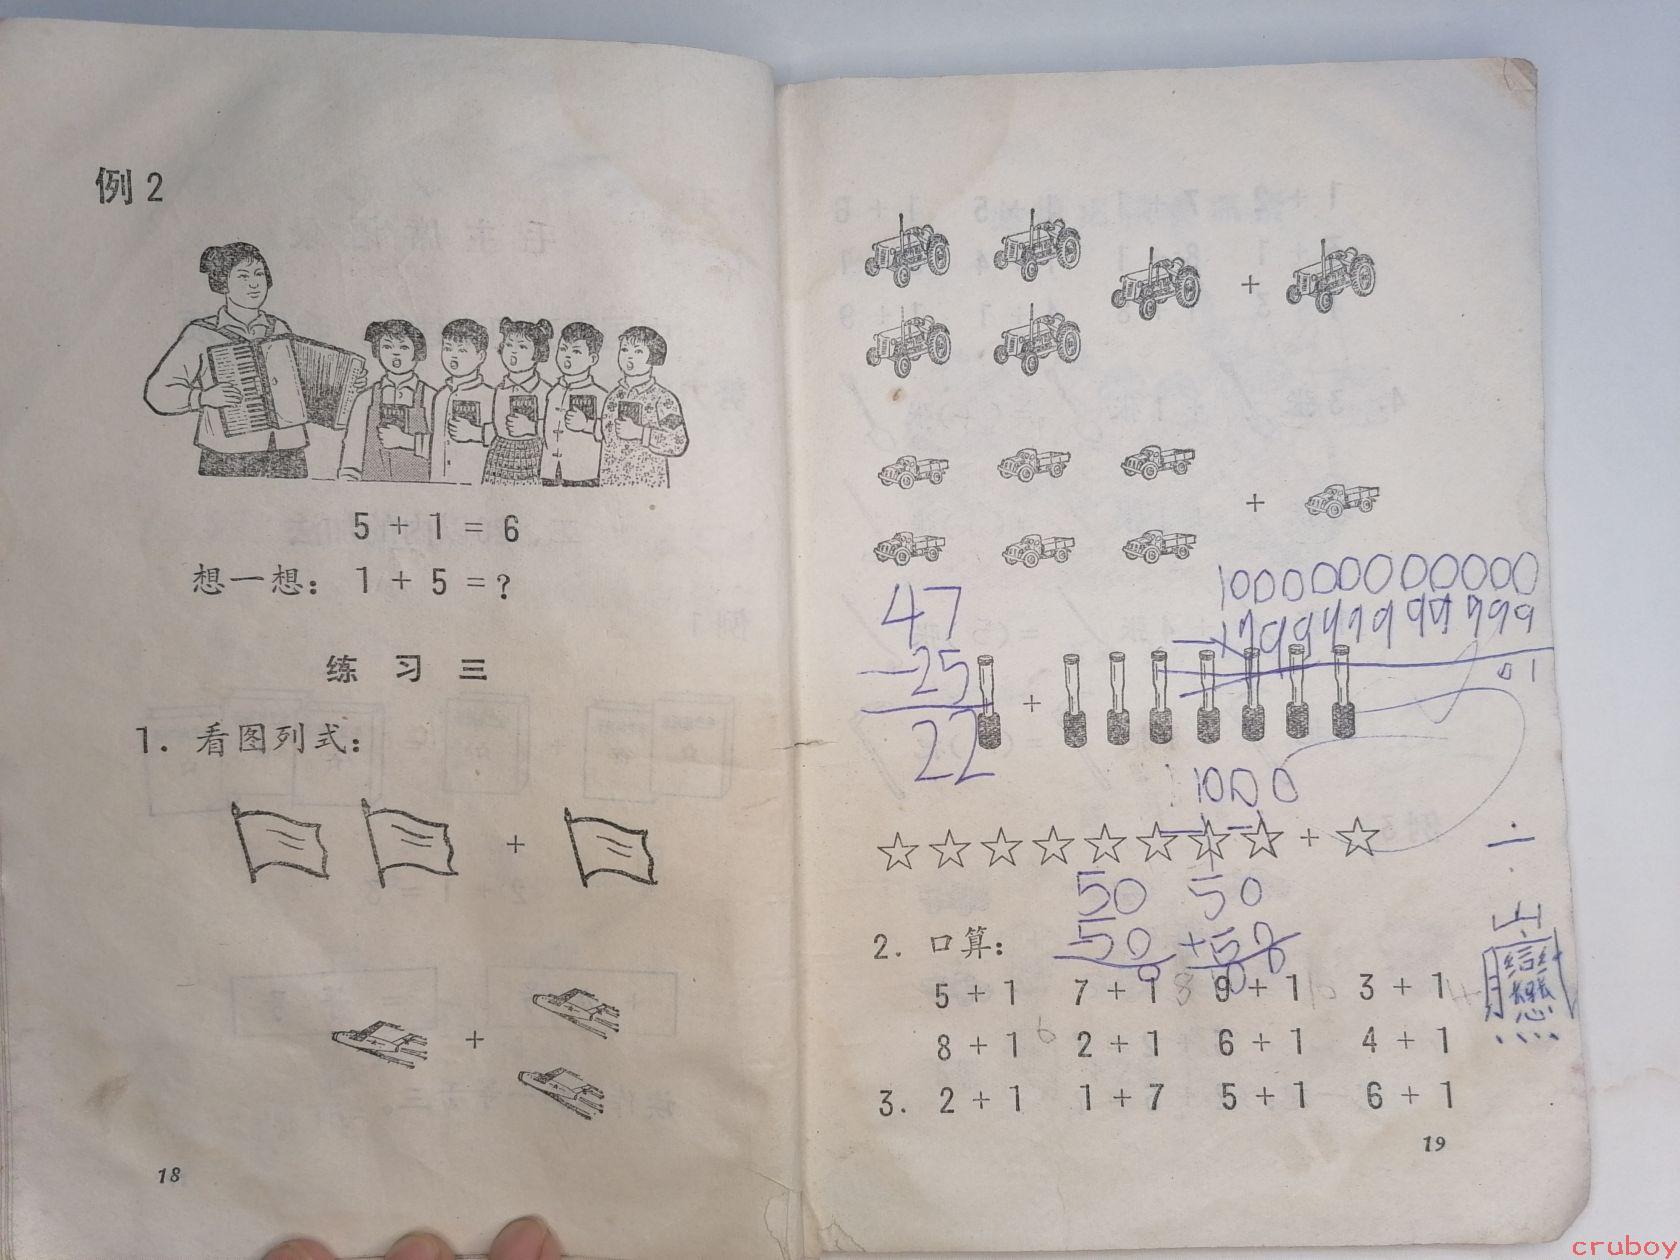 例2
5 + 1 = 6
想一想：1 + 5 = ?
练 习 三
1. 看图列式：
+
+
18
+
+
47
-25
22
+
1000
+
50 50
50 +50
2. 口算：
5 + 1 7 + 1 9 + 1 3 + 1
8 + 1 2 + 1 6 + 1 4 + 1
3. 2 + 1 1 + 7 5 + 1 6 + 1
19
cruboy